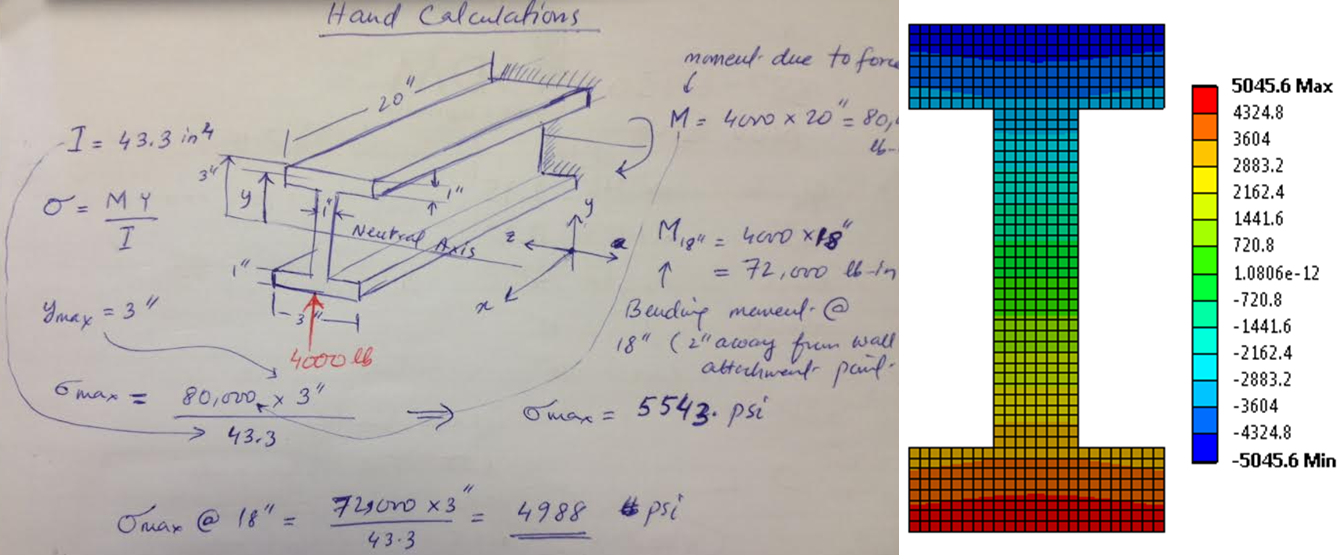 Hand Calculations
moment due to force
M = 4000 × 20" = 80,
lb-
20"
I = 43.3 in⁴
3"
y
1"
1"
σ = M Y / I
Neutral Axis
y
z
x
M₁₈" = 4000 × 18"
= 72,000 lb-in
1"
Bending moment @
18" (2" away from wall
attachment point.
ymax = 3"
3"
4000 lb
σmax = 80,000 × 3" / 43.3 ⇒ σmax = 5543. psi
σmax @ 18" = 72,000 × 3" / 43.3 = 4988 psi
5045.6 Max
4324.8
3604
2883.2
2162.4
1441.6
720.8
1.0806e-12
-720.8
-1441.6
-2162.4
-2883.2
-3604
-4324.8
-5045.6 Min